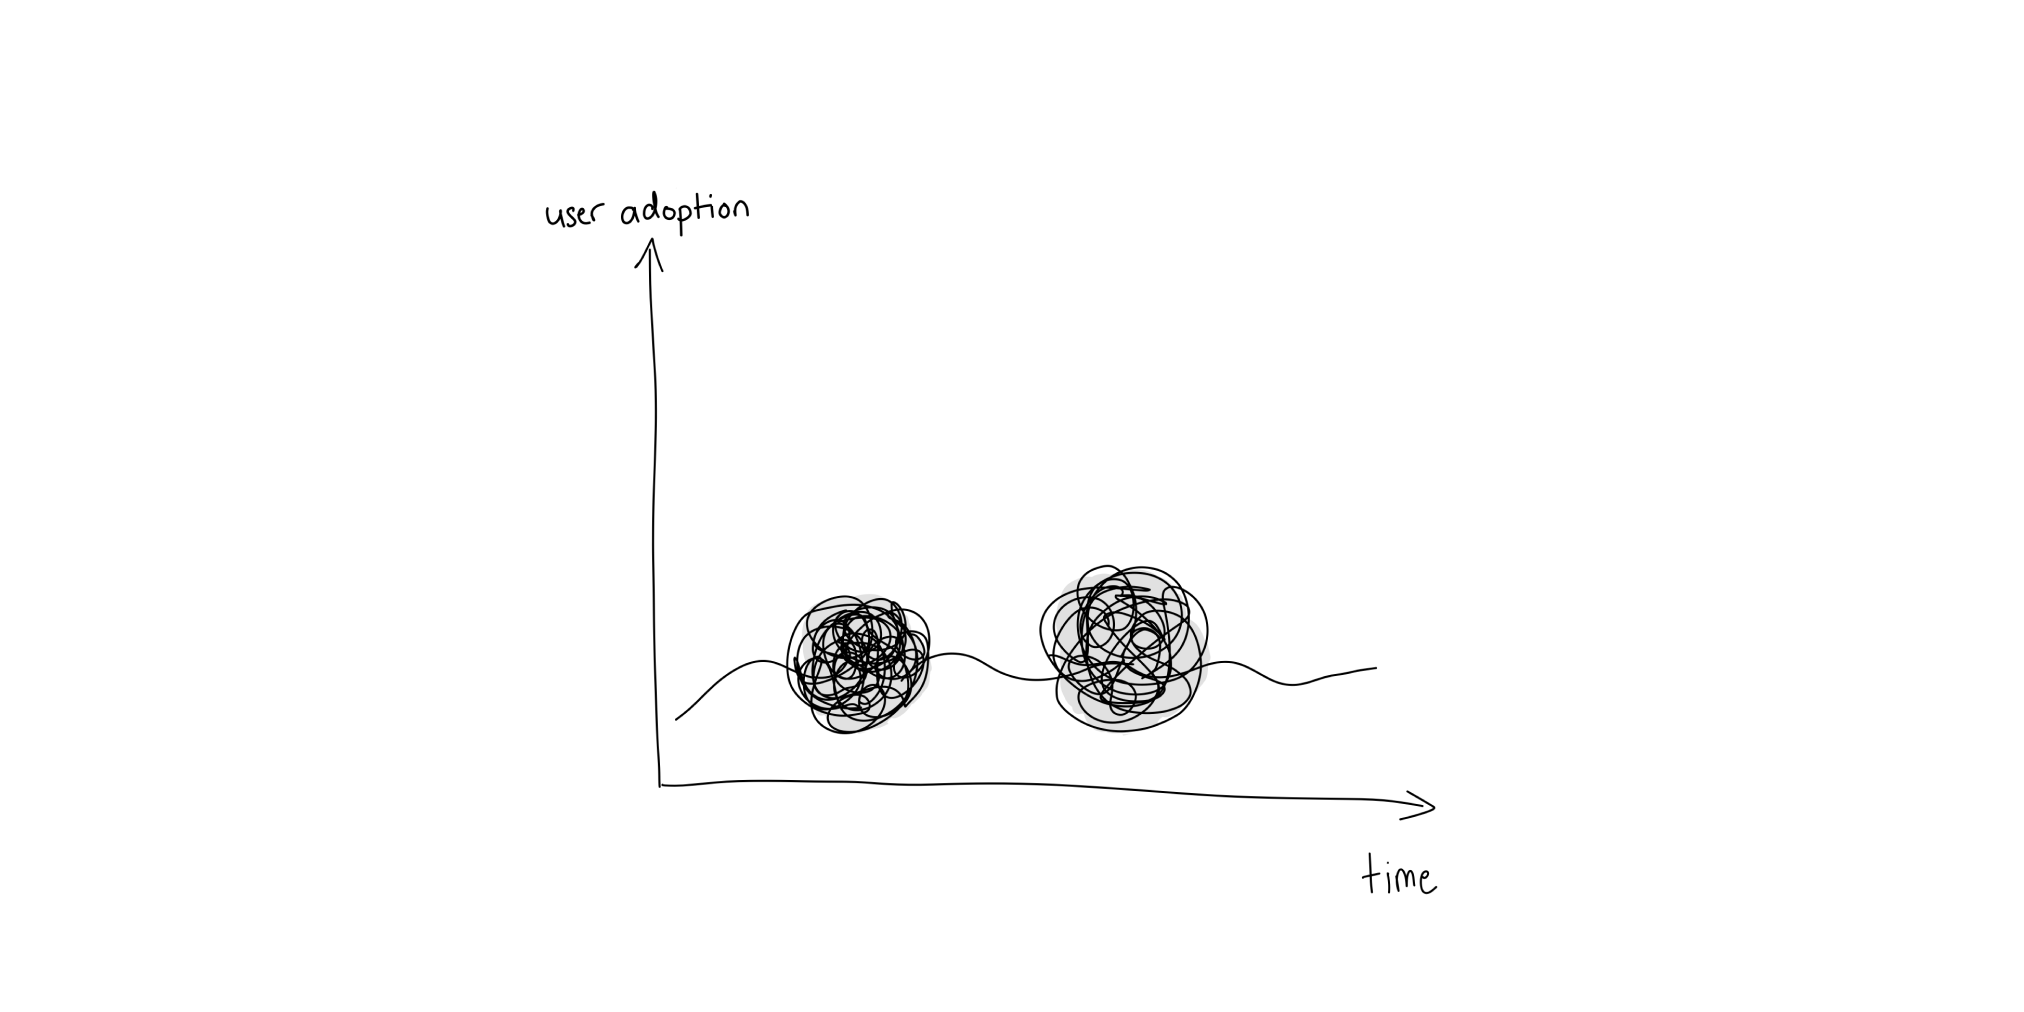 user adoption
time